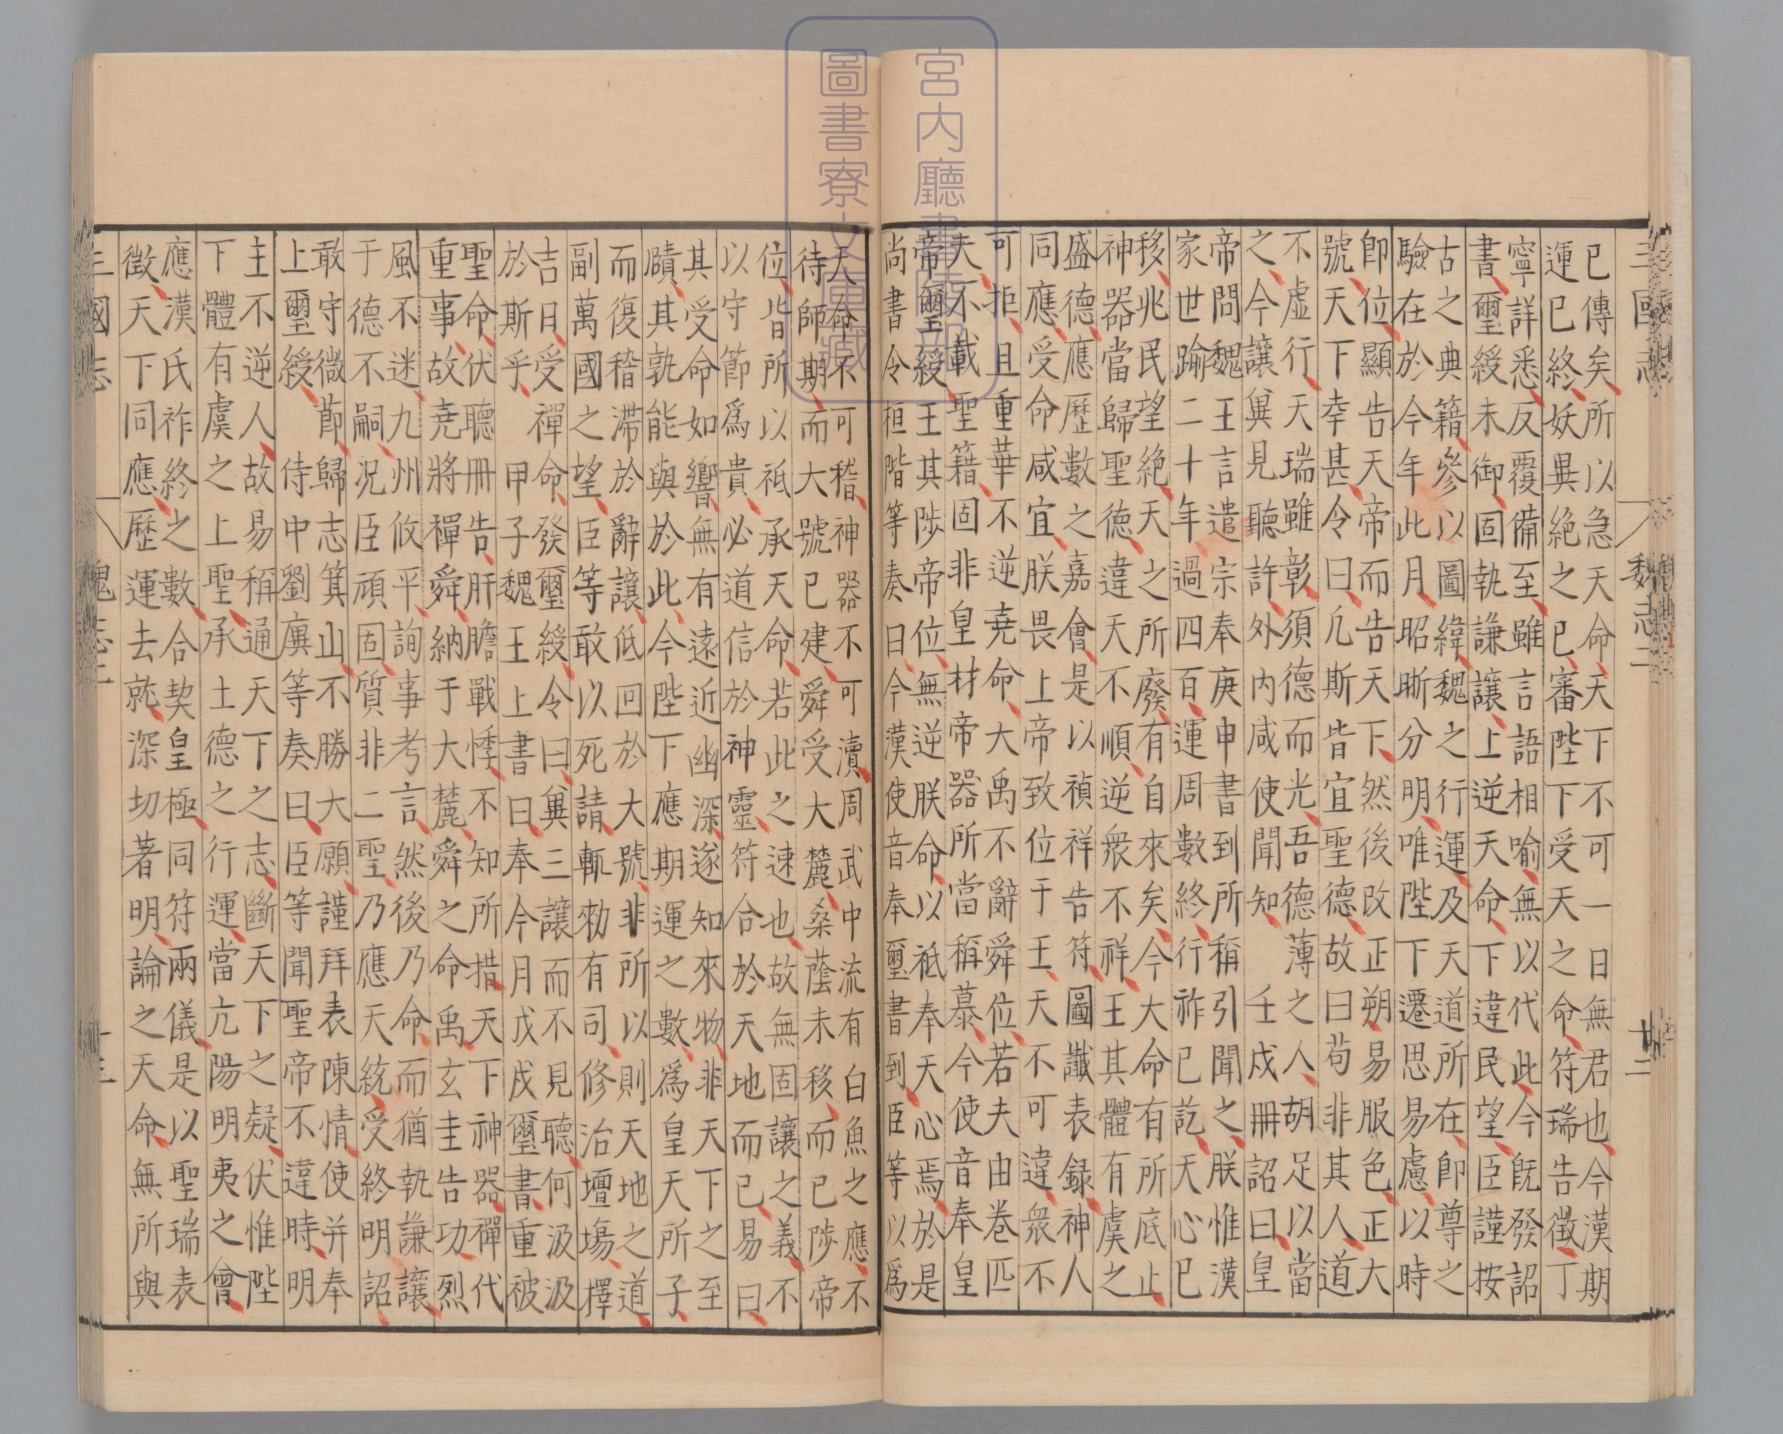 三國志 魏志二
已傳矣所以急天命天下不可一日無君也今漢期
運已終妖異絶之已審陛下受天之命符瑞告徵丁
寧詳悉反覆備至雖言語相喻無以代此今旣發詔
書璽綬未御固執謙讓上逆天命下違民望臣謹按
古之典籍參以圖緯魏之行運及天道所在卽尊之
驗在於今年此月昭晰分明唯陛下遷思易慮以時
卽位顯告天帝而告天下然後改正朔易服色正大
號天下幸甚令曰凡斯皆宜聖德故曰苟非其人道
不虛行天瑞雖彰須德而光吾德薄之人胡足以當
之今讓冀見聽許外内咸使聞知　壬戌冊詔曰皇
帝問魏王言遣宗奉庚申書到所稱引聞之朕惟漢
家世踰二十年過四百運周數終行祚已訖天心已
移兆民望絶天之所廢有自來矣今大命有所底止
神器當歸聖德違天不順逆衆不祥王其體有虞之
盛德應歷數之嘉會是以禎祥告符圖讖表録神人
同應受命咸宜朕畏上帝致位于王天不可違衆不
可拒且重華不逆堯命大禹不辭舜位若夫由卷匹
夫不載聖籍固非皇材帝器所當稱慕今使音奉皇
帝璽綬王其陟帝位無逆朕命以祗奉天心焉於是
尚書令桓階等奏曰今漢使音奉璽書到臣等以爲
天命不可稽神器不可瀆周武中流有白魚之應不
待師期而大號已建舜受大麓桑蔭未移而已陟帝
位皆所以祗承天命若此之速也故無固讓之義不
以守節爲貴必道信於神靈符合於天地而已易曰
其受命如響無有遠近幽深遂知來物非天下之至
賾其孰能與於此今陛下應期運之數爲皇天所子
而復稽滯於辭讓低回於大號非所以則天地之道
副萬國之望臣等敢以死請輒勑有司修治壇場擇
吉日受禪命發璽綬令曰冀三讓而不見聽何汲汲
於斯乎　甲子魏王上書曰奉今月戊戌璽書重被
聖命伏聽冊告肝膽戰悸不知所措天下神器禪代
重事故堯將禪舜納于大麓舜之命禹玄圭告功烈
風不迷九州攸平詢事考言然後乃命而猶執謙讓
于德不嗣况臣頑固質非二聖乃應天統受終明詔
敢守微節歸志箕山不勝大願謹拜表陳情使并奉
上璽綬　侍中劉廙等奏曰臣等聞聖帝不違時明
主不逆人故易稱通天下之志斷天下之疑伏惟陛
下體有虞之上聖承土德之行運當亢陽明夷之會
應漢氏祚終之數合契皇極同符兩儀是以聖瑞表
徵天下同應歷運去就深切著明論之天命無所與
三國志 魏志二
宮内廳書陵部
圖書寮文庫藏